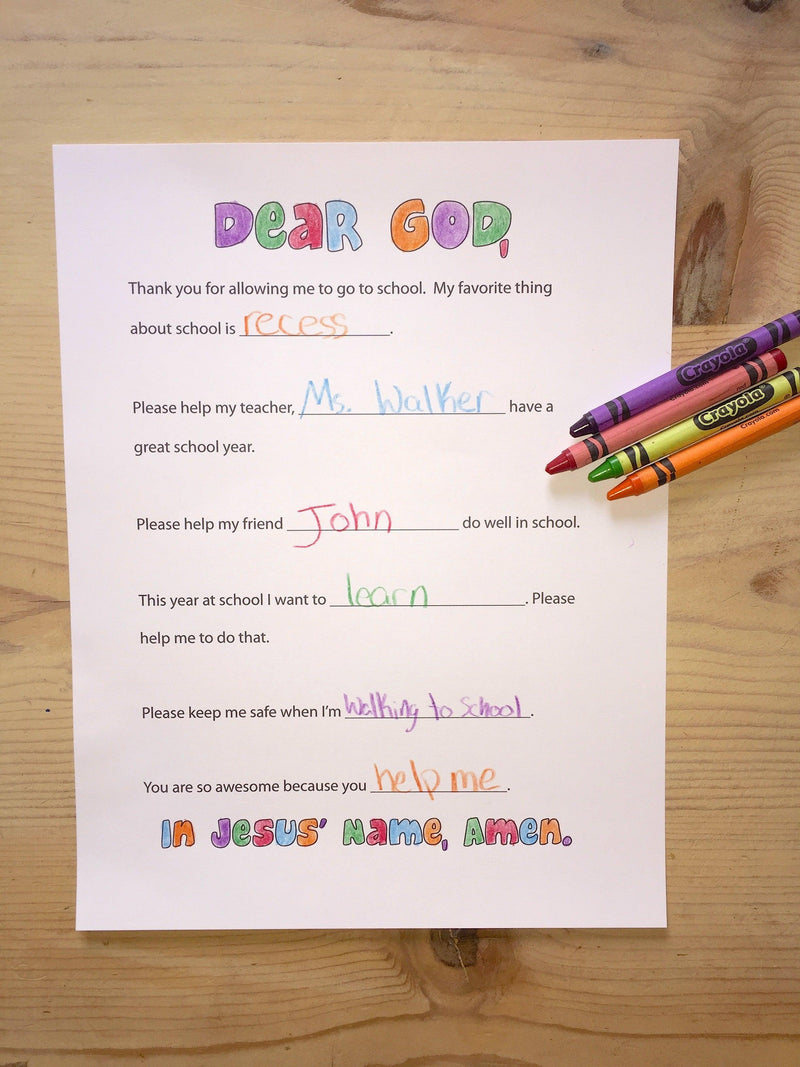 Dear God,
Thank you for allowing me to go to school. My favorite thing
about school is recess.
Please help my teacher, Ms. Walker have a
great school year.
Please help my friend John do well in school.
This year at school I want to learn. Please
help me to do that.
Please keep me safe when I'm Walking to School.
You are so awesome because you help me.
In Jesus' Name, Amen.
Crayola
Crayola.com
Crayola
Crayola.com